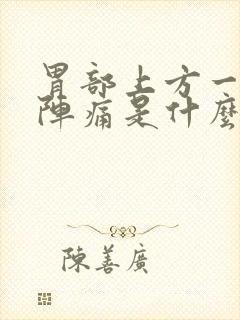 胃部上方一
陣痛是什麼
陳善廣